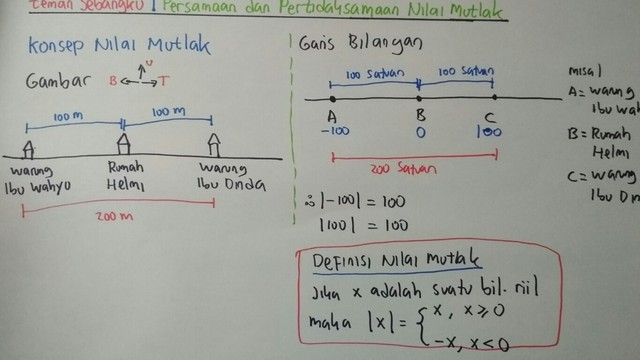 Teman Sebangku | Persamaan dan Pertidaksamaan Nilai Mutlak
Konsep Nilai Mutlak
Gambar B U T
100 m 100 m
warung Ibu Wahyu
Rumah Helmi
warung Ibu Onda
200 m
Garis Bilangan
100 satuan 100 satuan
A B C
-100 0 100
200 satuan
misal
A = warung
Ibu Wah
B = Rumah
Helmi
C = warung
Ibu On
∴ |-100| = 100
|100| = 100
Definisi Nilai Mutlak
Jika x adalah suatu bil. riil
maka |x| = { x, x ≥ 0
-x, x < 0